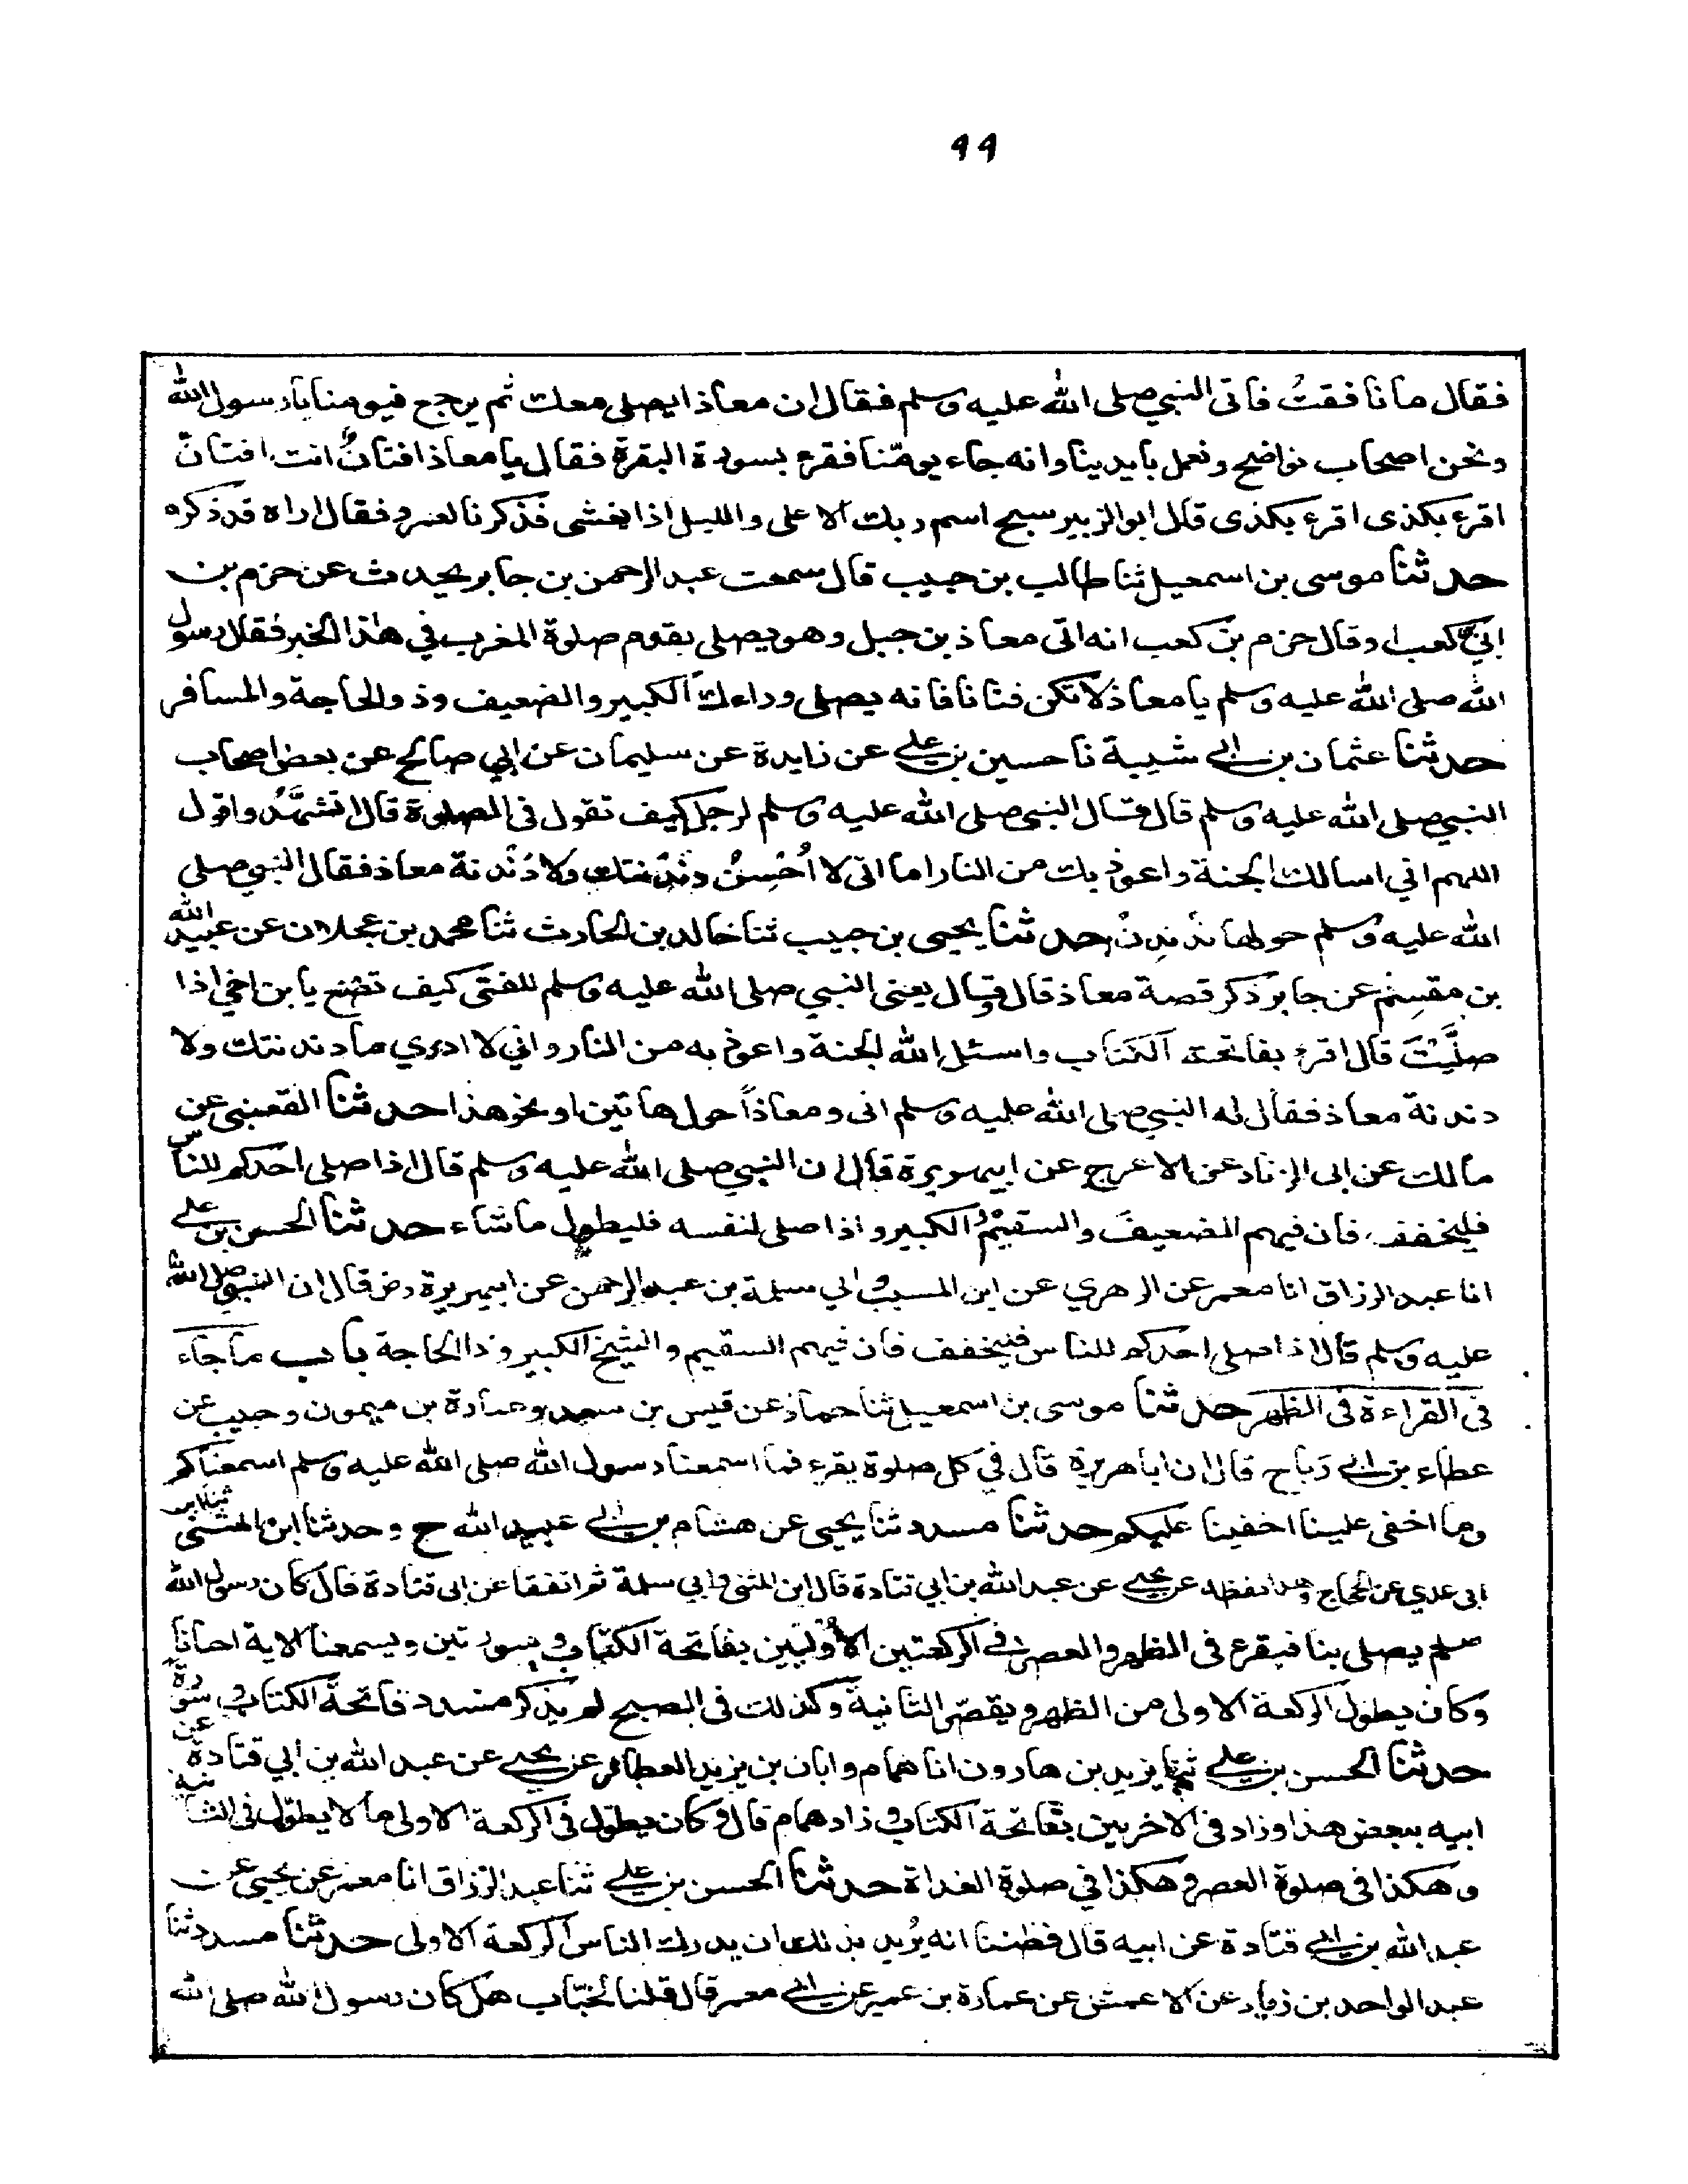 ٩٩
فقال ما نافقتُ فاتى النبي صلى الله عليه وسلم فقال ان معاذا يصلى معك ثم يرجع فيومنا يا رسول الله
ونحن اصحاب نواضح ونعمل بايدينا وانه جاء يومّنا فقرء بسورة البقرة فقال يا معاذ افتانٌ انت افتانٌ
اقرء بكذى اقرء بكذى قال ابو الزبير سبح اسم ربك الاعلى والليل اذا يغشى فذكرنا لعمرو فقال اراه قد ذكره
حدثنا موسى بن اسمعيل ثنا طالب بن حبيب قال سمعت عبد الرحمن بن جابر يحدث عن حزم بن
ابي كعب وقال حزم بن كعب انه اتى معاذ بن جبل وهو يصلى بقوم صلوة المغرب في هذا الخبر فقال رسول
الله صلى الله عليه وسلم يا معاذ لا تكن فتانا فانه يصلى وراءك الكبير والضعيف وذو الحاجة والمسافر
حدثنا عثمان بن ابي شيبة نا حسين بن علي عن زايدة عن سليمان عن ابي صالح عن بعض اصحاب
النبي صلى الله عليه وسلم قال قال النبي صلى الله عليه وسلم لرجل كيف تقول فى الصلوة قال اتشهّد واقول
اللهم اني اسالك الجنة واعوذ بك من النار اما انى لا اُحْسِنُ دندنتك ولا دندنة معاذ فقال النبي صلى
الله عليه وسلم حولها ندندن حدثنا يحيى بن حبيب ثنا خالد بن الحارث ثنا محمد بن عجلان عن عبيد الله
بن مقسم عن جابر ذكر قصة معاذ قال وقال يعنى النبي صلى الله عليه وسلم للفتى كيف تصنع يا بن اخي اذا
صلَّيْتَ قال اقرء بفاتحة الكتاب واسئل الله الجنة واعوذ به من النار واني لا ادري ما دندنتك ولا
دندنة معاذ فقال له النبي صلى الله عليه وسلم انى ومعاذاً حول هاتين او نحو هذا حدثنا القعنبى عن
مالك عن ابى الزناد عن الاعرج عن ابيهريرة قال ان النبي صلى الله عليه وسلم قال اذا صلى احدكم للناس
فليخفف فان فيهم الضعيفَ والسقيم الكبير واذا صلى لنفسه فليطول ما شاء حدثنا الحسن بن علي
انا عبد الرزاق انا معمر عن الزهري عن ابن المسيب وابي سلمة بن عبد الرحمن عن ابيهريرة رض قال ان النبي صلى الله
عليه وسلم قال اذا صلى احدكم للناس فليخفف فان فيهم السقيم والشيخ الكبير وذا الحاجة باب ما جاء
فى القراءة فى الظهر حدثنا موسى بن اسمعيل ثنا حماد عن قيس بن سعد وعمارة بن ميمون وحبيب عن
عطاء بن ابي رَباح قال ان ابا هريرة قال في كل صلوة يقرء فما اسمعنا رسول الله صلى الله عليه وسلم اسمعناكم
وما اخفى علينا اخفينا عليكم حدثنا مسدد ثنا يحيى عن هشام بن ابي عبد الله ح وحدثنا ابن المثنى ثنا ابن
ابى عدي عن الحجاج وهذا لفظه عن يحيى عن عبد الله بن ابي قتادة قال ابن المثنى وابي سلمة ثم اتفقا عن ابى قتادة قال كان رسول الله
صلعم يصلى بنا فيقرء فى الظهر والعصر فى الركعتين الاُوليين بفاتحة الكتاب وبسورتين ويسمعنا الاية احيانا
وكان يطول الركعة الاولى من الظهر ويقصّر الثانية وكذلك فى الصبح لم يذكر مسدد فاتحة الكتاب وسورة
حدثنا الحسن بن علي ثنا يزيد بن هارون انا همام وابان بن يزيد العطار عن يحيى عن عبد الله بن ابي قتادة عن
ابيه ببعض هذا وزاد فى الاخريين بفاتحة الكتاب وزاد همام قال وكان يطوّل فى الركعة الاولى ما لا يطوّل فى الثانية
وهكذا فى صلوة العصر وهكذا في صلوة الغداة حدثنا الحسن بن علي ثنا عبد الرزاق انا معمر عن يحيى عن
عبد الله بن ابي قتادة عن ابيه قال فظننا انه يُريد بذلك ان يدرك الناس الركعة الاولى حدثنا مسدد ثنا
عبد الواحد بن زياد عن الاعمش عن عمارة بن عمير عن ابي معمر قال قلنا لخبّاب هل كان رسول الله صلى الله